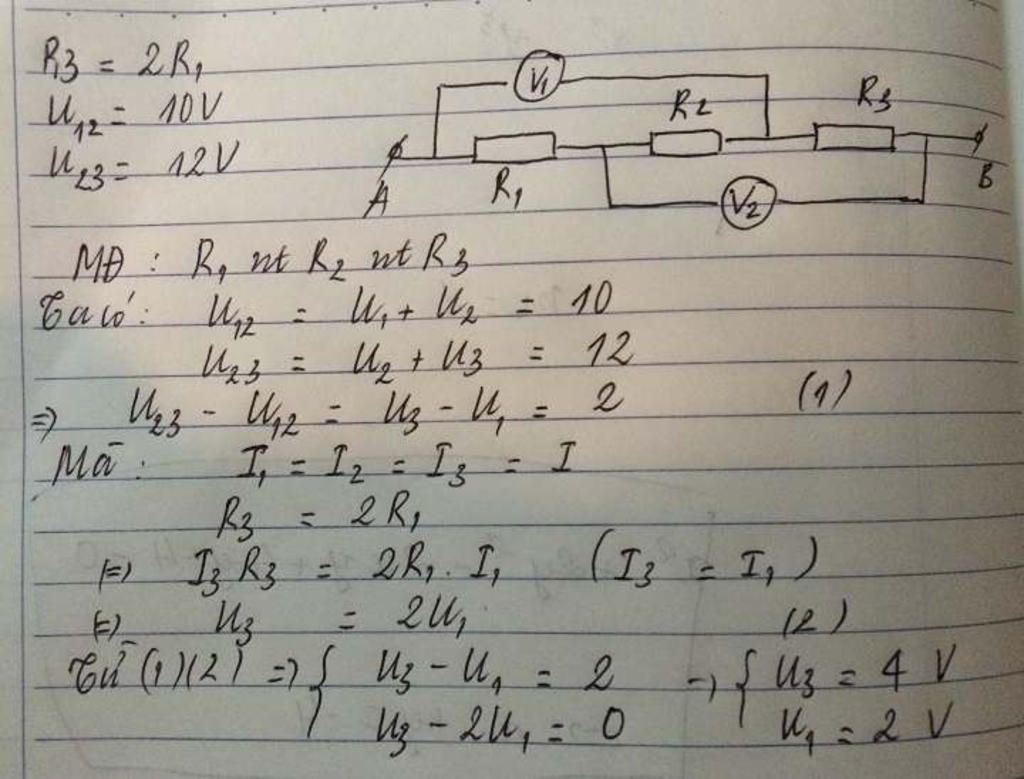 R3 = 2R₁
U₁₂ = 10V
U₂₃ = 12V
V₁
R2
R3
A
R₁
V₂
B
MĐ : R₁ nt R₂ nt R₃
Ta có : U₁₂ = U₁ + U₂ = 10
U₂₃ = U₂ + U₃ = 12
=) U₂₃ - U₁₂ = U₃ - U₁ = 2 (1)
Mà : I₁ = I₂ = I₃ = I
R₃ = 2R₁
(=) I₃R₃ = 2R₁.I₁ (I₃ = I₁)
(=) U₃ = 2U₁ (2)
Từ (1)(2) =) { U₃ - U₁ = 2 -) { U₃ = 4 V
U₃ - 2U₁ = 0 U₁ = 2 V